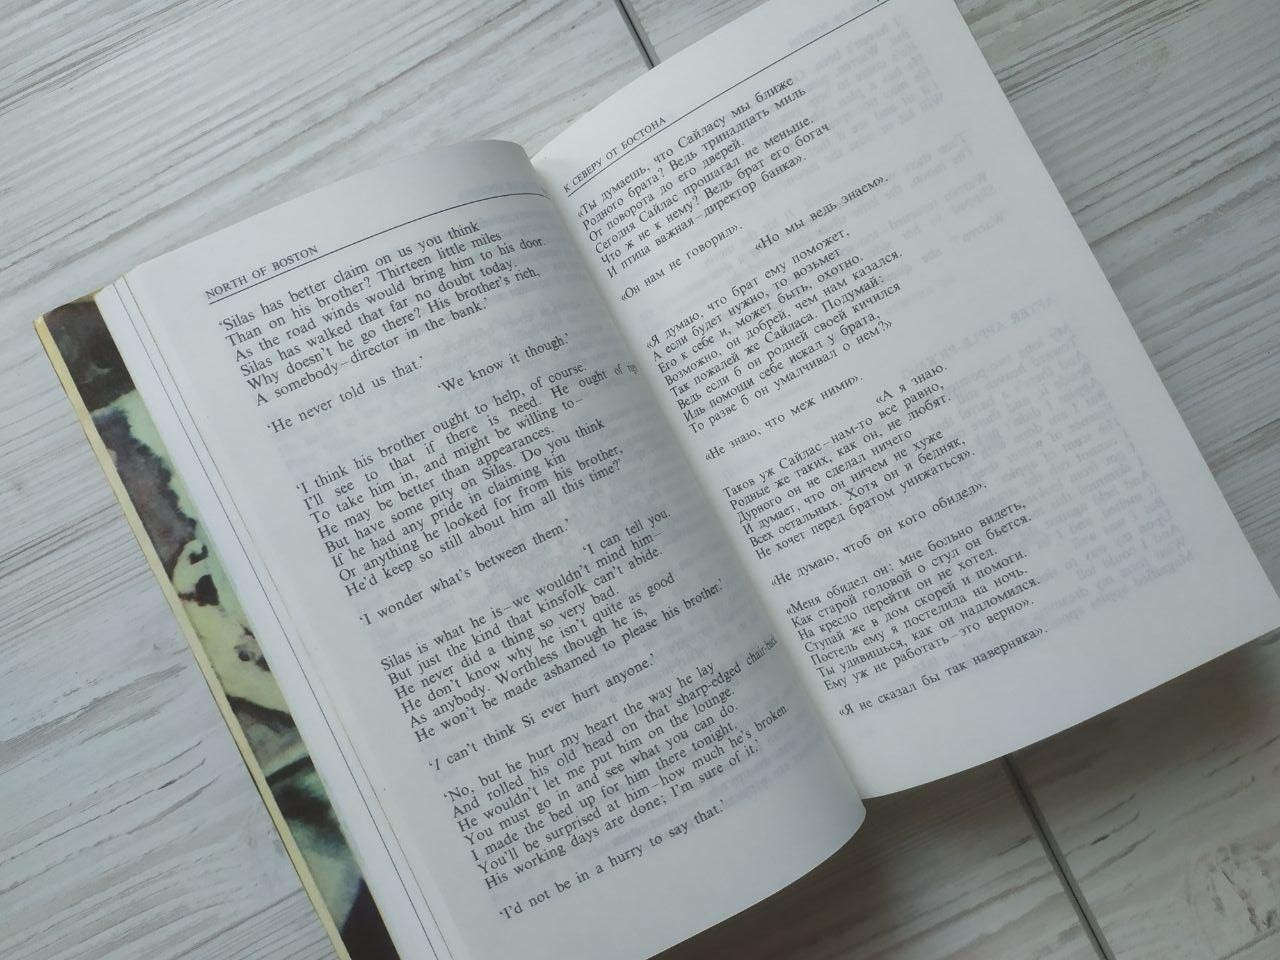 NORTH OF BOSTON
‘Silas has better claim on us you think
Than on his brother? Thirteen little miles
As the road winds would bring him to his door.
Silas has walked that far no doubt today.
Why doesn’t he go there? His brother’s rich,
A somebody–director in the bank.’
‘He never told us that.’
‘We know it though.’
‘I think his brother ought to help, of course.
I’ll see to that if there is need. He ought of
To take him in, and might be willing to–
He may be better than appearances.
But have some pity on Silas. Do you think
If he had any pride in claiming kin
Or anything he looked for from his brother,
He’d keep so still about him all this time?’
‘I wonder what’s between them.’
‘I can tell you.
Silas is what he is–we wouldn’t mind him–
But just the kind that kinsfolk can’t abide.
He never did a thing so very bad.
He don’t know why he isn’t quite as good
As anybody. Worthless though he is,
He won’t be made ashamed to please his brother.’
‘I can’t think Si ever hurt anyone.’
‘No, but he hurt my heart the way he lay
And rolled his old head on that sharp-edged
He wouldn’t let me put him on the lounge.
You must go in and see what you can do.
I made the bed up for him there tonight.
You’ll be surprised at him–how much he’s broken.
His working days are done; I’m sure of it.’
‘I’d not be in a hurry to say that.’
К СЕВЕРУ ОТ БОСТОНА
«Ты думаешь, что Сайласу мы ближе
Родного брата? Ведь тринадцать миль
От поворота до его дверей.
Сегодня Сайлас прошагал не меньше.
Что ж не к нему? Ведь брат его богач
И птица важная–директор банка».
«Он нам не говорил».
«Но мы ведь знаем».
«Я думаю, что брат ему поможет,
А если будет нужно, то возьмет
Его к себе и, может быть, охотно.
Возможно, он добрей, чем нам казался.
Так пожалей же Сайласа. Подумай:
Ведь если б он родней своей кичился
Иль помощи себе искал у брата,
То разве б он умалчивал о нем?»
«Не знаю, что меж ними».
«А я знаю.
Таков уж Сайлас–нам-то все равно,
Родные же таких, как он, не любят.
Дурного он не сделал ничего
И думает, что он ничем не хуже
Всех остальных. Хотя он и бедняк,
Не хочет перед братом унижаться».
«Не думаю, чтоб он кого обидел».
«Меня обидел он: мне больно видеть,
Как старой головой о стул он бьется.
На кресло перейти он не хотел.
Ступай же в дом скорей и помоги.
Постель ему я постелила на ночь.
Ты удивишься, как он надломился.
Ему уж не работать–это верно».
«Я не сказал бы так наверняка».